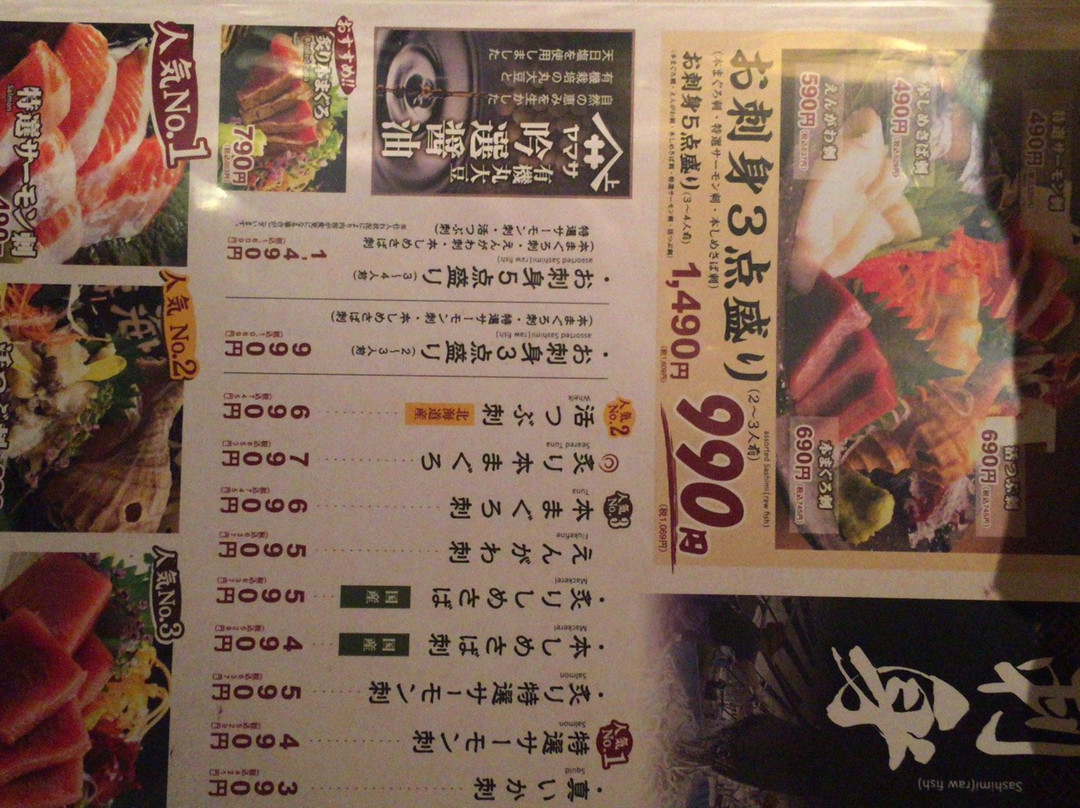 刺身
Sashimi(raw fish)
・真いか刺 390円
Squid
人気No.1 特選サーモン刺 490円
Salmon
・炙り特選サーモン刺 590円
Salmon
・本しめさば刺 国産 490円
Mackerel
・炙りしめさば 国産 590円
Mackerel
えんがわ刺 590円
人気No.3 本まぐろ刺 690円
Tuna
炙り本まぐろ 790円
Seared Tuna
人気No.2 活つぶ刺 北海道産 690円
Whelk
・お刺身3点盛り(2〜3人前) 990円
assorted Sashimi(raw fish)
(本まぐろ刺・特選サーモン刺・本しめさば刺)
・お刺身5点盛り(3〜4人前) 1,490円
assorted Sashimi(raw fish)
(本まぐろ刺・えんがわ刺・本しめさば刺
特選サーモン刺・活つぶ刺)
ヤマサ
有機丸大豆
吟選醤油
自然の恵みを生かした
有機栽培の丸大豆と
天日塩を使用しました
おすすめ!!
炙り本まぐろ
790円
人気No.1
特選サーモン刺
Salmon
490円
人気 No.2
人気No.3
お刺身3点盛り(2〜3人前)
assorted Sashimi(raw fish)
990円
(税込1,069円)
(本まぐろ刺・特選サーモン刺・本しめさば刺)
お刺身5点盛り(3〜4人前)
1,490円
(税込1,609円)
えんがわ刺
590円
本しめさば刺
490円
特選サーモン刺
490円
本まぐろ刺
690円
(税込745円)
活つぶ刺
690円
(税込745円)